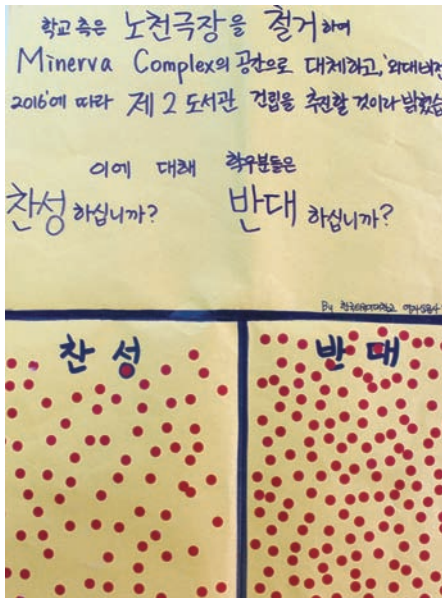 학교 측은 노천극장을 철거하여
Minerva Complex의 공간으로 대체하고, '외대비전
2016'에 따라 제 2 도서관 건립을 추진할 것이라 밝혔습
이에 대해 학우분들은
찬성하십니까? 반대하십니까?
By 한국외국어대학교
찬성 반대